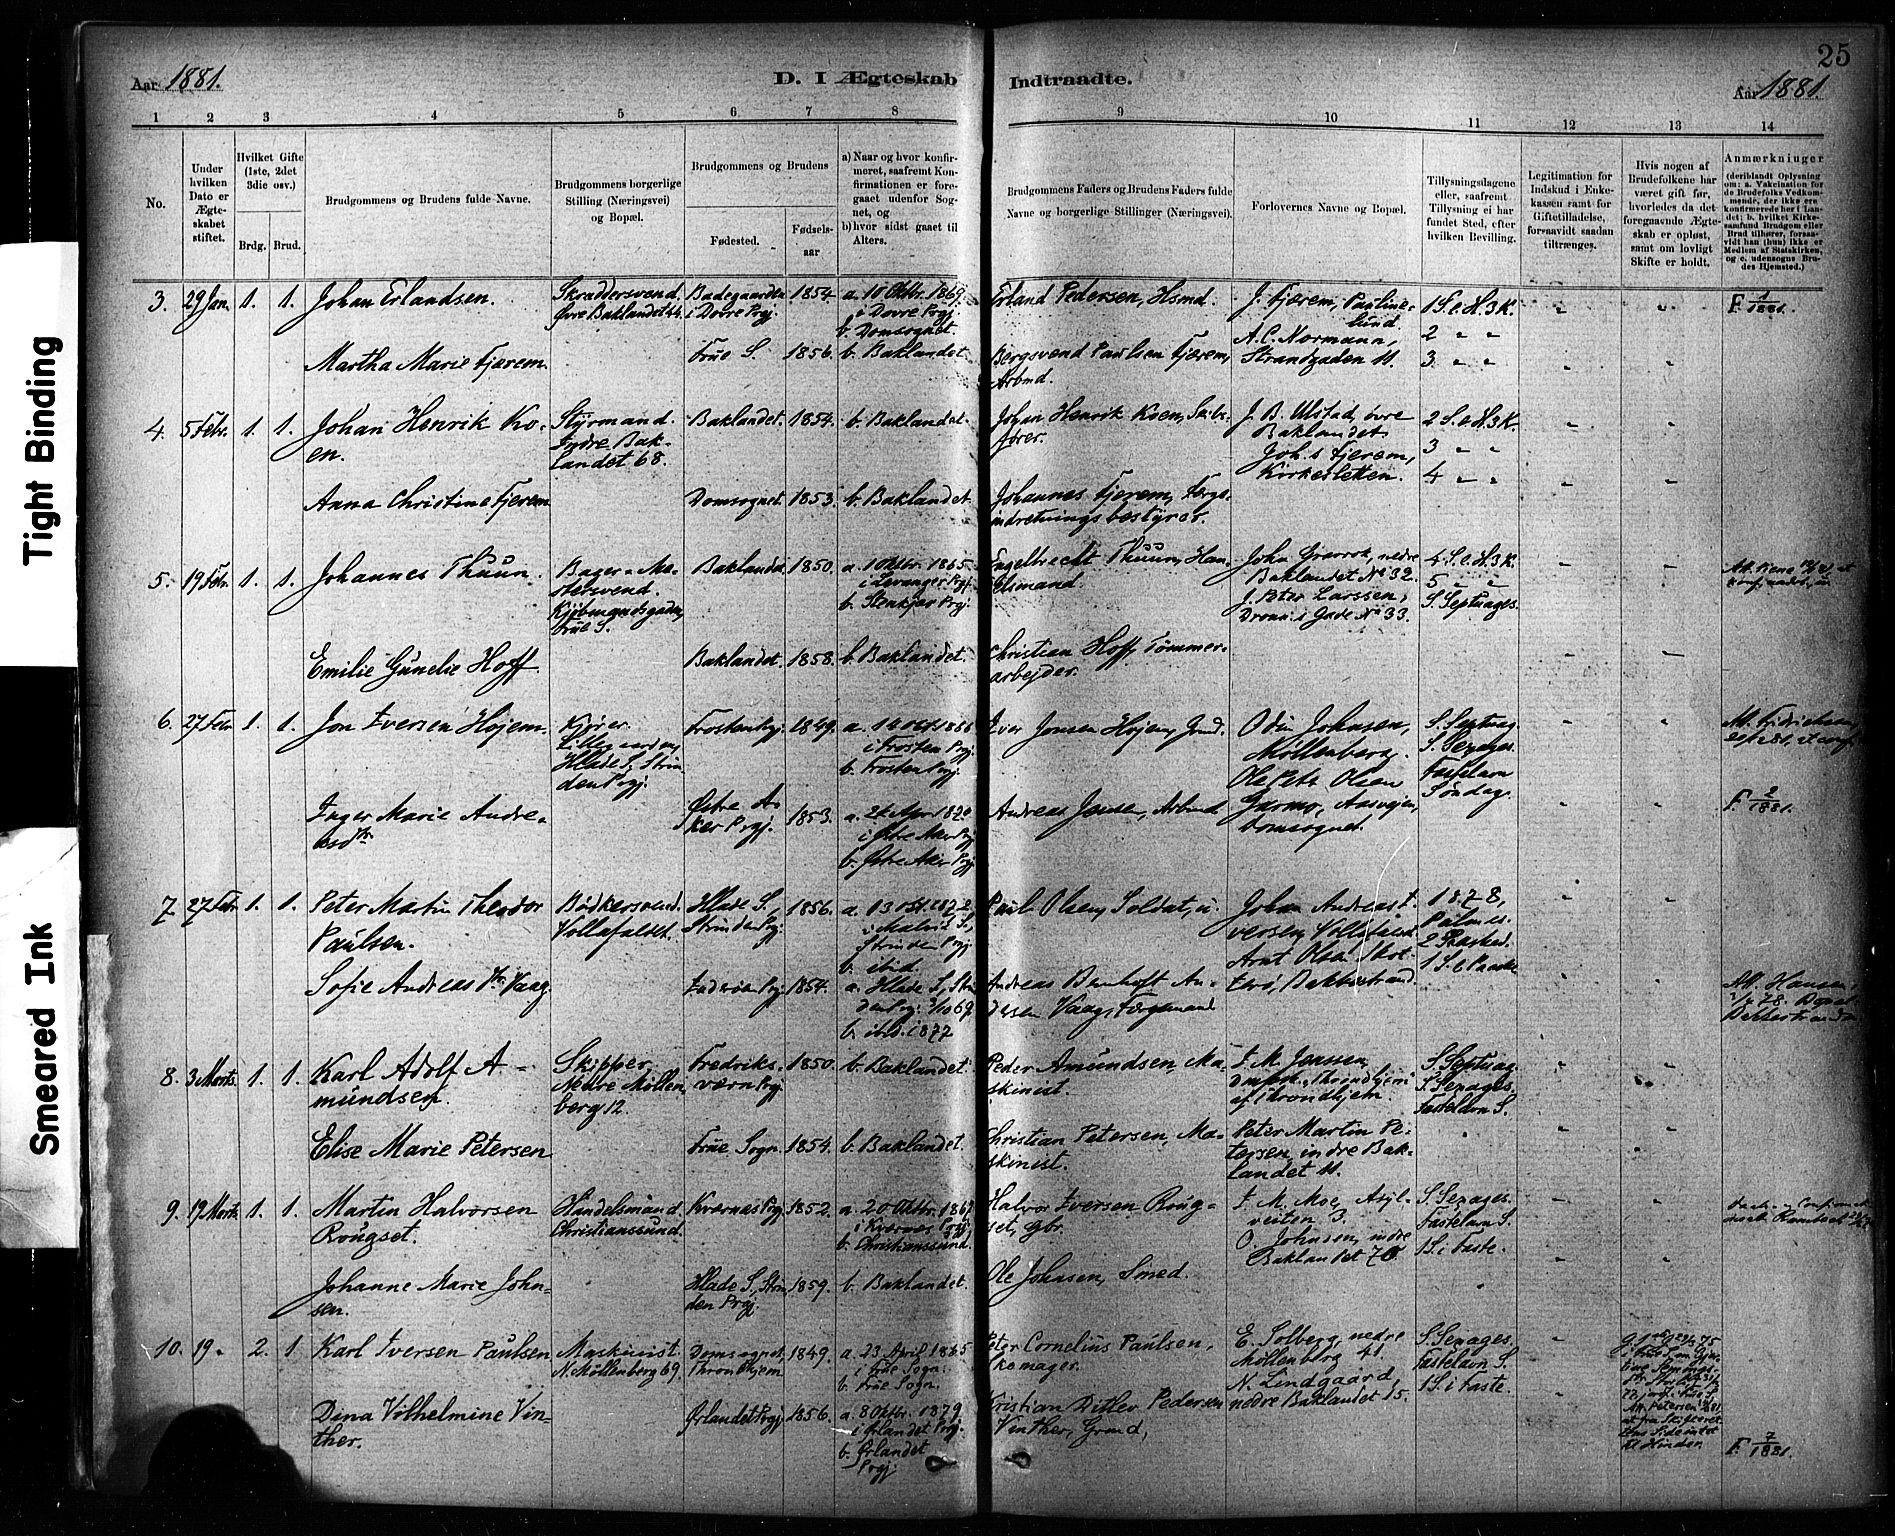 25
Aar 1881.
D. I Ægteskab Indtraadte.
Aar 1881.
1 2 3 4 5 6 7 8 9 10 11 12 13 14
No.
Under hvilken Dato er Ægteskabet stiftet.
Hvilket Gifte (1ste, 2det 3die osv.)
Brdg. Brud.
Brudgommens og Brudens fulde Navne.
Brudgommens borgerlige Stilling (Næringsvei) og Bopæl.
Brudgommens og Brudens
Fødested. Fødselsaar
a) Naar og hvor konfirmeret, saafremt Konfirmationen er foregaaet udenfor Sognet, og
b) hvor sidst gaaet til Alters.
Brudgommens Faders og Brudens Faders fulde Navne og borgerlige Stillinger (Næringsvei).
Forlovernes Navne og Bopæl.
Tillysningsdagene eller, saafremt Tillysning ei har fundet Sted, efter hvilken Bevilling.
Legitimation for Indskud i Enkekassen samt for Giftetilladelse, forsaavidt saadan tiltrænges.
Hvis nogen af Brudefolkene har været gift før, hvorledes da det foregaaende Ægteskab er opløst, samt om lovligt Skifte er holdt.
Anmærkninger
(deriblandt Oplysning om: a. Vakcination for de Brudefolks Vedkommende, der ikke ere konfirmerede her i Landet; b. hvilket Kirkesamfund Brudgom eller Brud tilhører, forsaavidt han (hun) ikke er Medlem af Statskirken, og c. udensogns Brudes Hjemsted.)
3. 29 Jan. 1. 1. Johan Erlandsen. Skræddersvend. Øvre Baklandet 44. Badegaarden i Dovre Prgj. 1854 a. 10 Oktbr. 1869 i Dovre Prgj. b. Domsognet. Erland Pedersen, Hsmd. J. Fjærem, Paulinelund. A. C. Normann, Strandgaden 11. 1 S. e. H. 3 K. 2 " " 3 " " F. 1/1881.
Martha Marie Fjærem Frue S. 1856. b. Baklandet. Bergsvend Paulsen Fjærem, Arbmd.
4. 5 Febr. 1. 1. Johan Henrik Koen. Styrmand. Indre Baklandet 68. Baklandet. 1854. b. Baklandet. Johan Henrik Koen, Skibsfører. J. B. Ulstad, øvre Baklandet. Joh.s Fjerem, Kirkesletten. 2 S. e. H. 3 K. 3 " " 4 " "
Anna Christine Fjerem Domsognet. 1853. b. Baklandet. Johannes Fjerem, Færgeindretningsbestyrer.
5. 19 Febr. 1. 1. Johannes Thuun. Bager-Mestersvend. Kjøbmandsgaden, Frue S. Baklandet 1850. a. 1 Oktbr. 1865 i Levanger Prgj. b. Stenkjær Prgj. Engelbrecht Thuun, Handelsmand. John Graarok, nedre Baklandet No 32. J. Peter Larssen, Dronn.s Gade No 33. 4 S. e. H. 3 K. 5 " " S. Septuages.
Emilie Gunelie Hoff. Baklandet. 1858. b. Baklandet. Christian Hoff, Tømmerarbejder.
6. 27 Febr 1. 1. Jon Iversen Højem. Frosten Prgj. 1849. i Frosten Prgj. b. Frosten Prgj. Iver Jonsen Højem, Grd. Odin Johnsen, Møllenberg. Ole Petr Olsen Garmo, Aasvejen, Domsognet. S. Septuag. S. Sexages. Fastelavn Søndag.
Inger Marie Andreasdtr. Østre Aker Prgj. 1853. i Østre Aker Prgj. b. Østre Aker Prgj. Andreas Jensen, Arbmd. F. 2/1881.
7. 27 Febr 1. 1. Peter Martin Theodor Paulsen. Bødkersvend. Vollafaldet. Hlade S., Strinden Prgj. 1856. i Malvik S., Strinden Prgj. b. ibid. Paul Olsen, Soldat, Johan Andreas Iversen, Vollafaldet. 1878, Palmes. 2 Paasked. 1 S. e. Paaske
Sofie Andreasdtr Vaag. Inderøen Prgj. 1854. a. Hlade S., Strinden Prgj. 3/10 69. b. ibid. 1877 Vaag, Færgemand Bakkestrand.
8. 3 Marts. 1. 1. Karl Adolf Amundsen. Skipper, Nedre Møllenberg 12. Fredriksværn Prgj. 1850. b. Baklandet. Peder Amundsen, Maskinist. F. M. Jenssen, S. Septuag. S. Sexages. Fastelavn S.
Elise Marie Petersen Frue Sogn. 1854. b. Baklandet. Christian Petersen, Maskinist. Peter Martin Petersen, indre Baklandet 11.
9. 19 Marts 1. 1. Martin Halvorsen Rougset. Handelsmand. Christianssund. Kværnæs Prgj. 1852. a. 20 Oktbr. 1867 i Kværnæs Prgj. b. Christianssund. Halvor Iversen Rougset, Gbr. F. M. Moe, Asylveiten 3. O. Johnsen, indre Baklandet 70. S. Sexages. Fastelavn S. 1 S. i Faste.
Johanne Marie Johnsen. Hlade S., Strinden Prgj. 1859. b. Baklandet. Ole Johnsen, Smed.
10. 19 " 2. 1. Karl Iversen Paulsen Maskinist. N. Møllenberg 69. Domsognet, Throndhjem 1849. a. 23 April 1865 i Frue Sogn. b. Frue Sogn. Peter Cornelius Paulsen, Skomager. E. Solberg, nedre Møllenberg 41. N. Lindgaard, nedre Baklandet 15. S. Sexages. Fastelavn S. 1 S. i Faste.
Dina Vilhelmine Vinther. Ørlandet Prgj 1856. a. 8 Oktbr. 1879. i Ørlandet Prgj. b. Ørlandet Prgj Kristian Ditlev Pedersen Vinther, Grmd, F. 7/1881.
Tight Binding
Smeared Ink